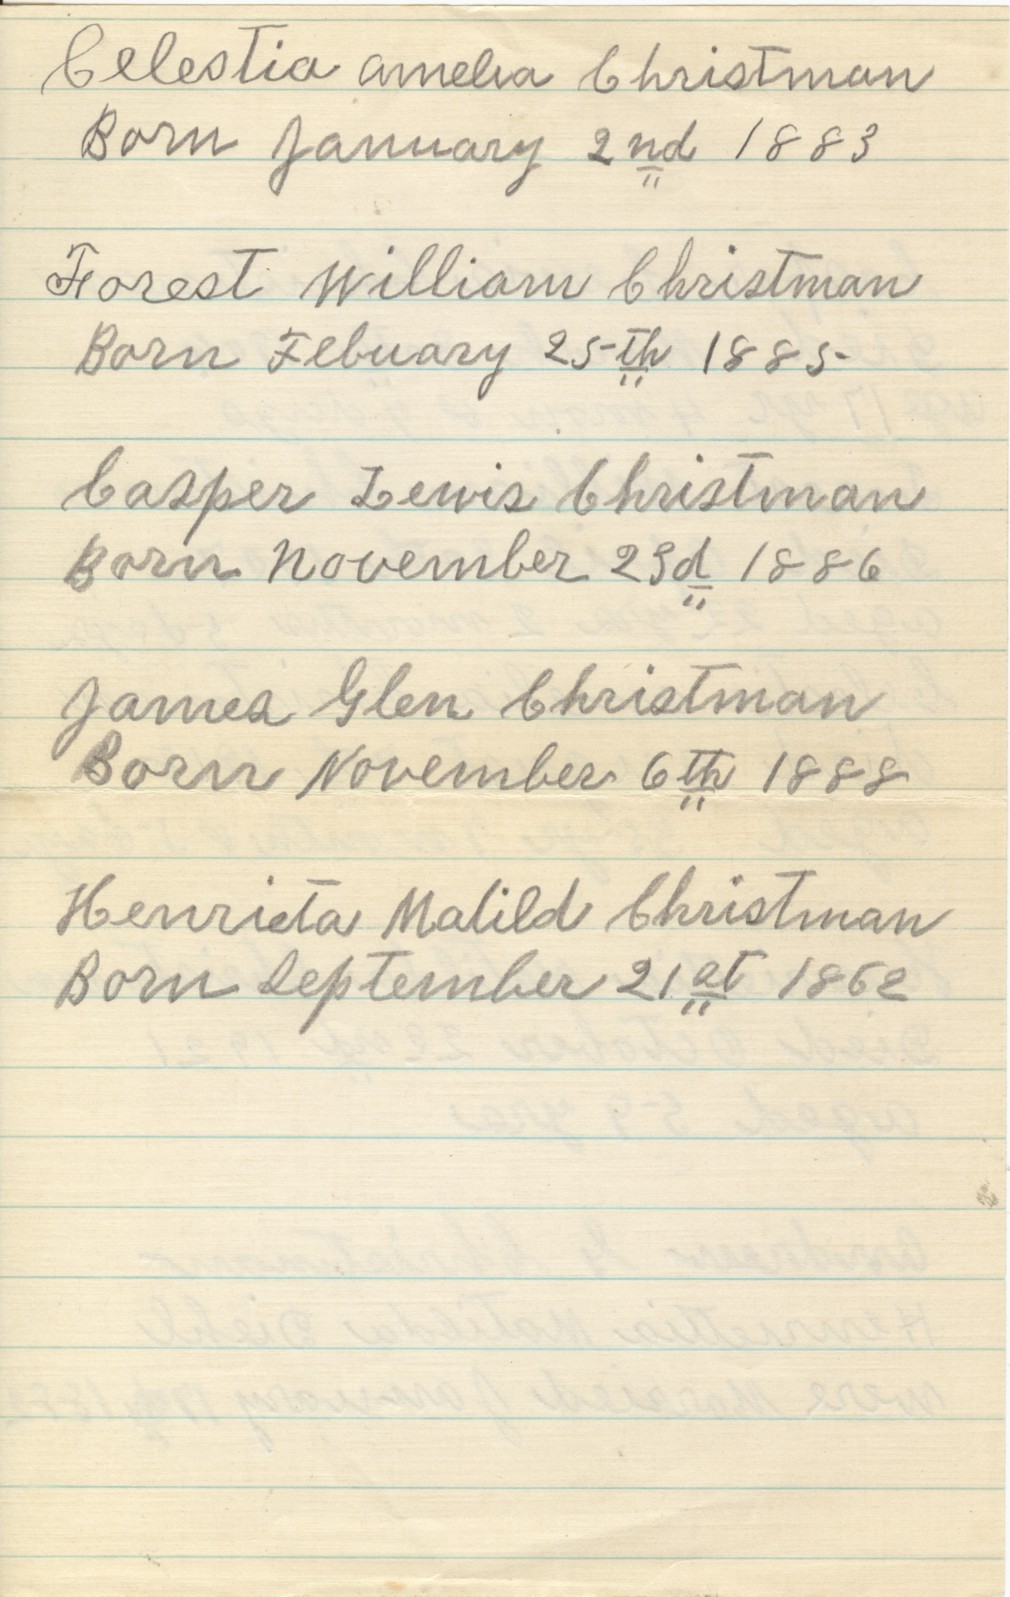 Celestia amelia Christman
Born January 2nd 1883
Forest William Christman
Born Febuary 25th 1885
Casper Lewis Christman
Born November 23d 1886
James Glen Christman
Born November 6th 1888
Henrieta Matild Christman
Born September 21st 1862